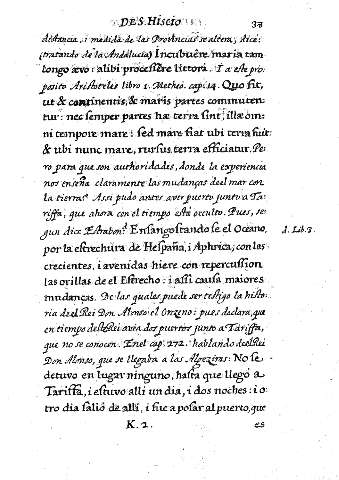 DE S. Hiscio
distancia, i medida de las Provincias se altera, dice:
(tratando de la Andalucia) Incubuêre maria tam
longo ævo: alibi processêre littora. I a este pro-
posito Aristoteles libro 1. Metheo. capi. 14. Quo fit,
ut & continentis, & maris partes commuten-
tur: nec semper partes hæ terra sint, illa om-
ni tempore mare: sed mare fiat ubi terra fuit:
& ubi nunc mare, rursus terra efficiatur. Pe-
ro para que son authoridades, donde la experiencia
nos enseña claramente las mudanças de el mar con
la tierra? Assi pudo antes aver puerto junto a Ta-
riffa, que ahora con el tiempo està occulto. Pues, se-
gun dice Estrabon: Ensangostrando se el Oceano,
a. Lib. 3.
por la estrechura de Hespaña, i Aphrica, con las
crecientes, i avenidas hiere con repercussion
las orillas de el Estrecho: i assi causa maiores
mudanças. De las quales puede ser testigo la histo-
ria de el Rei Don Alonso el Onzeno: pues declara, que
en tiempo deste Rei avia dos puertos junto a Tariffa,
que no se conocen. En el cap. 272. hablando de el Rei
Don Alonso, que se llegaba a las Algeziras: No se
detuvo en lugar ninguno, hasta que llegò a
Tariffa, i estuvo alli un dia, i dos noches: i o-
tro dia saliò de alli, i fue a posar al puerto, que
K. 2. es